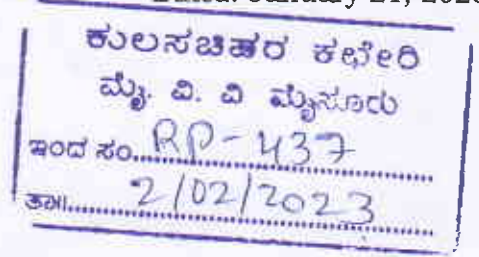 ಕುಲಸಚಿವರ ಕಛೇರಿ
ಮೈ. ವಿ. ವಿ ಮೈಸೂರು
ಇಂದ ಸಂ...RP-437
ತಾ|| 2/02/2023